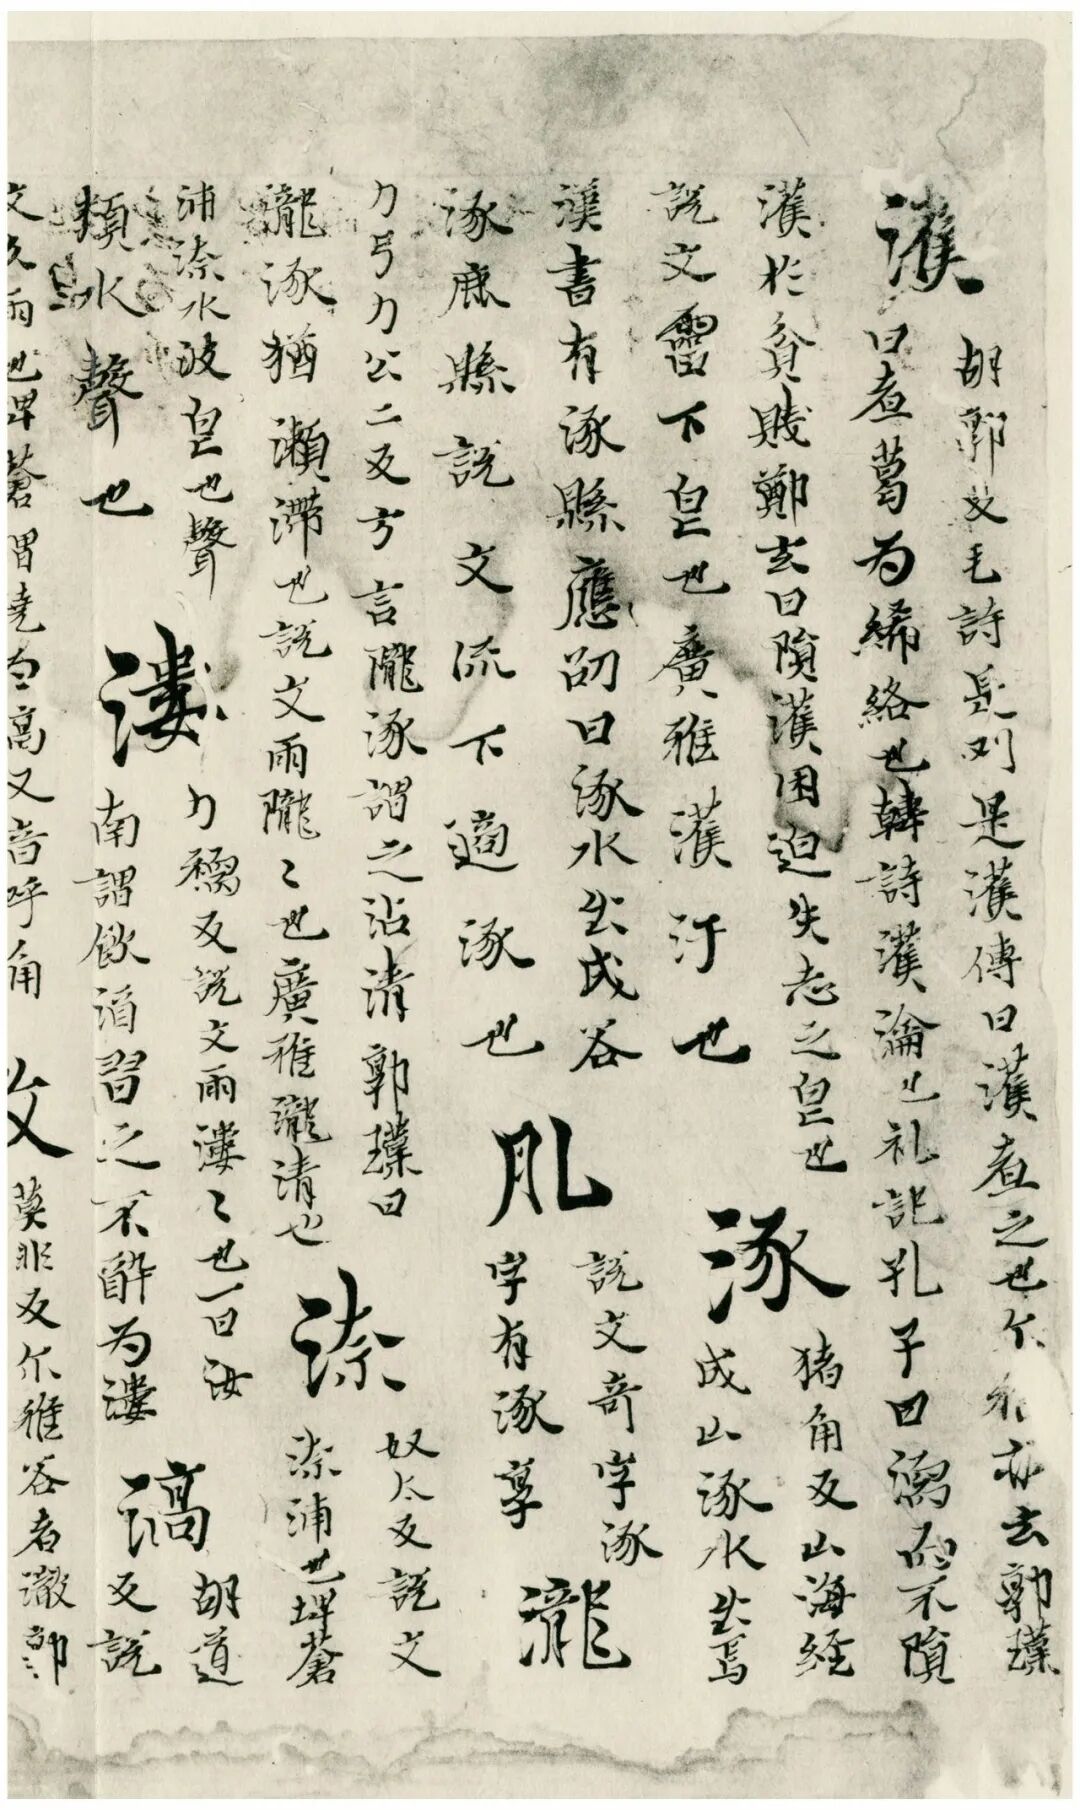 濩
胡郭反毛詩是刈是濩傳曰濩煮之也尒雅亦云郭璞
曰煮葛為絺綌也韓詩濩瀹也礼記孔子曰濡而不隕
濩於貧賎鄭玄曰隕濩困迫失志之皃也
說文霤下皃也廣雅濩汙也
涿
猪角反山海經
成山涿水出焉
漢書有涿縣應劭曰涿水出戍谷
涿鹿縣說文流下適涿也
說文奇字涿
字有涿享
瀧
力弓力公二反方言隴涿謂之沾清郭璞曰
瀧涿猶瀨滯也說文雨隴〻也廣雅瀧清也
渿
奴太反說文
渿浦也埤蒼
浦渿水波皃也聲
類水聲也
漊
力反說文雨漊〻也一曰汝
南謂飲酒習之不醉為漊
滈
胡道
反說
文久雨也埤蒼謂堯白高又音呼角
莫非反尒雅谷者溦郭